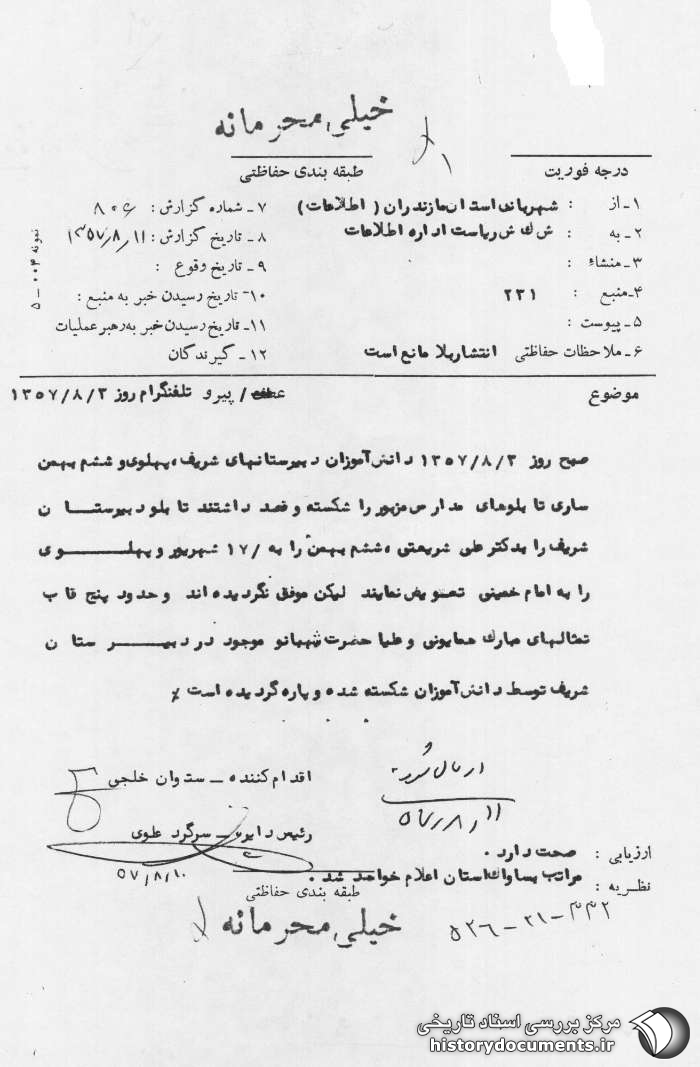 خیلی محرمانه
طبقه بندی حفاظتی
درجه فوریت
۱ـ از : شهربانی استان مازندران ( اطلاعات )
۲ـ به : ش ك ش ریاست اداره اطلاعات
۳ـ منشاء :
۴ـ منبع : ۲۳۱
۵ـ پیوست :
۶ـ ملاحظات حفاظتی انتشار بلا مانع است
۷ـ شماره گزارش : ۸۰۶
۸ ـ تاریخ گزارش : ۱۳۵۷/۸/۱۱
۹ ـ تاریخ وقوع :
۱۰ـ تاریخ رسیدن خبر به منبع :
۱۱ـ تاریخ رسیدن خبر به رهبر عملیات
۱۲ ـ گیرندگان
نمونه ۰۰۴ ـ ۵
موضوع عطف / پیرو تلفنگرام روز ۱۳۵۷/۸/۳
صبح روز ۱۳۵۷/۸/۳ دانش آموزان دبیرستانهای شریف ، پهلوی و ششم بهمن
ساری تابلوهای مدارس مزبور را شکسته و قصد داشتند تابلو دبیرستـــان
شریف را بدکتر علی شریعتی ، ششم بهمن را به /۱۷ شهریور و پهلــــوی
را به امام خمینی تعویض نمایند لیکن موفق نگردیده اند و حدود پنج قاب
تمثالهای مبارك همایونی و علیا حضرت شهبانو موجود در دبیـــرستان
شریف توسط دانش آموزان شکسته شده و پاره گردیده است ٪
اقدام کننده ـ ستوان خلجی
ارسال شود
۵۷/۸/۱۱
رئیس دایره ـ سرگرد علوی
۵۷/۸/۱۰
ارزیابی : صحت دارد .
نظریه : مراتب بساواك استان اعلام خواهد شد .
طبقه بندی حفاظتی
خیلی محرمانه
۵۲۶-۲۱-۳۳۲
مرکز بررسی اسناد تاریخی
historydocuments.ir